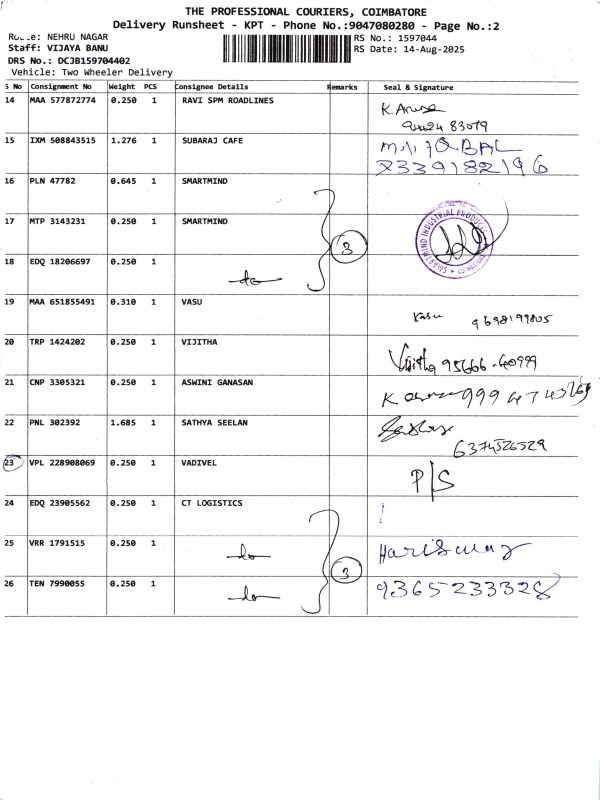 THE PROFESSIONAL COURIERS, COIMBATORE
Delivery Runsheet - KPT - Phone No.:9047080280 - Page No.:2
NEHRU NAGAR RS No.: 1597044
Staff: VIJAYA BANU RS Date: 14-Aug-2025
DRS No.: DCJB159704402
Vehicle: Two Wheeler Delivery
S No Consignment No Weight PCS Consignee Details Remarks Seal & Signature
14 MAA 577872774 0.250 1 RAVI SPM ROADLINES
15 IXM 508843515 1.276 1 SUBARAJ CAFE
16 PLN 47782 0.645 1 SMARTMIND
17 MTP 3143231 0.250 1 SMARTMIND
3
SMARTMIND INDUSTRIAL PRODUCTS COIMBATORE
18 EDQ 18206697 0.250 1 do
19 MAA 651855491 0.310 1 VASU Vasu
9698199805
20 TRP 1424202 0.250 1 VIJITHA
Vijitha 95666-40999
21 CNP 3305321 0.250 1 ASWINI GANASAN
22 PNL 302392 1.685 1 SATHYA SEELAN
6374526529
23 VPL 228908069 0.250 1 VADIVEL P/S
24 EDQ 23905562 0.250 1 CT LOGISTICS
25 VRR 1791515 0.250 1 do
3
26 TEN 7990055 0.250 1 do 9365233328